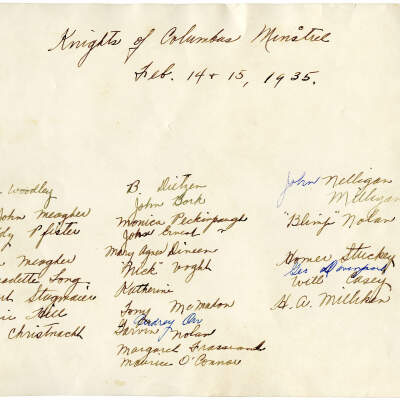 Knights of Columbus Minstrel
Feb. 14 + 15, 1935.
Woodley
John Meagher
Pfister
Meagher
Long
Stegmaier
Hill
Christnacht
B. Dietzen
John Bork
Monica Peckinpaugh
John Ernest
Mary Agnes Dineen
Nick Voght
Katherine
Tony McMahon
Audrey Orr
Marvin Nolan
Margaret
Maurice O'Connor
John Nelligan
Milligan
"Blimp" Nolan
Homer Stuckey
Geo Davenport
Will Casey
H. A. Milliken